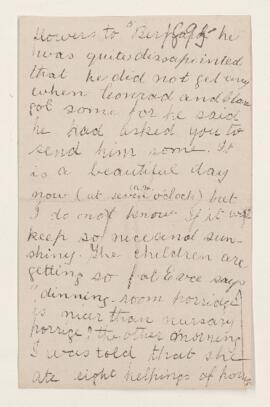 flowers to "Ber he
was quite dissapointed
that he did not get any
when Leonrad and I
got some for he said
he had asked you to
send him some. It
is a beautiful day
now (at seven o'clock) but
I do not know if it will
keep so nice and sun-
shiny. The children are
getting so fat Eve says
"dinning-room porridge
is nicer than nursary
porrige", the other morning
I was told that she
ate eight helpings of